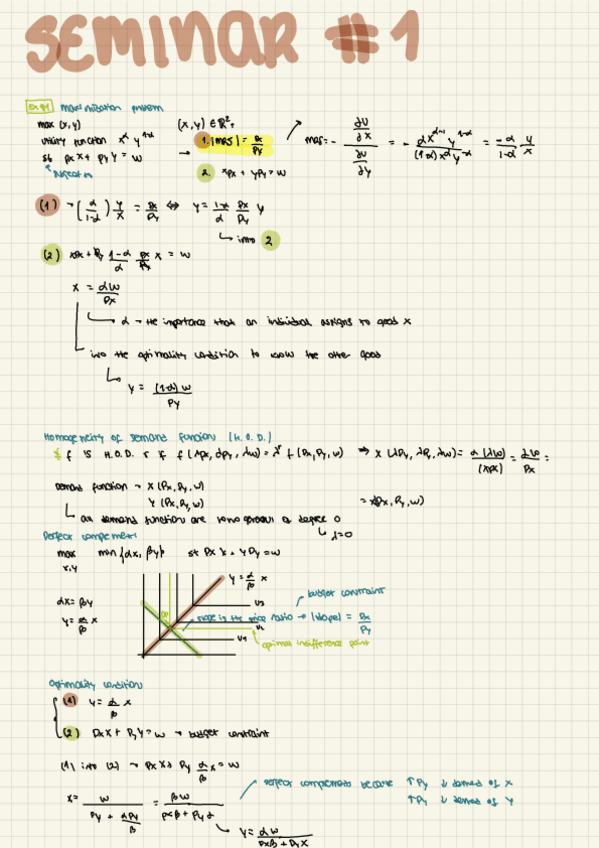 SEMINAR #1
Ex #1 maximization problem
max (x,y) (x,y) ∈ ℝ²₊
utility function x^α y^1-α → 1. |MRS| = Px/Py
st px x + py y = w
2. xPx + yPy = w
MRS = - (∂U/∂x)/(∂U/∂y) = - (αx^α-1 y^1-α)/((1-α) x^α y^-α) = -α/(1-α) y/x
(1) → (α/(1-α)) y/x = Px/Py ⇔ y = (1-α)/α Px/Py y
↳ into 2
(2) xPx + Py (1-α)/α Px/Py x = w
x = αw/Px
↳ α → the importance that an individual assigns to good x
↳ into the optimality condition to know the other good
↳ y = (1-α)w/Py
Homogeneity of demand function (H.O.D.)
f is H.O.D. r if f(λPx, λPy, λw) = λ^r f(Px, Py, w) → x(λPx, λPy, λw) = α(λw)/(λPx) = αw/Px =
= x(Px, Py, w)
Demand function → x(Px, Py, w)
y(Px, Py, w)
↳ all demand function are homogenous of degree 0
Perfect complement
max min{αx, βy} st Px x + y Py = w
x,y
αx = βy
y = α/β x
y = α/β x
budget constraint
U3
slope is the price ratio → |slope| = Px/Py
optimal indifference point
U1
Optimality condition
(1) y = α/β x
(2) Px x + Py y = w → budget constraint
(1) into (2) → Px x + Py α/β x = w
perfect complements because ↑Py ↓ demand of x
↑Py ↓ demand of y
x = w/(Py + αPy/β) = βw/(Pxβ + Pyα)
↳ y = αw/(Pxβ + Pyα)